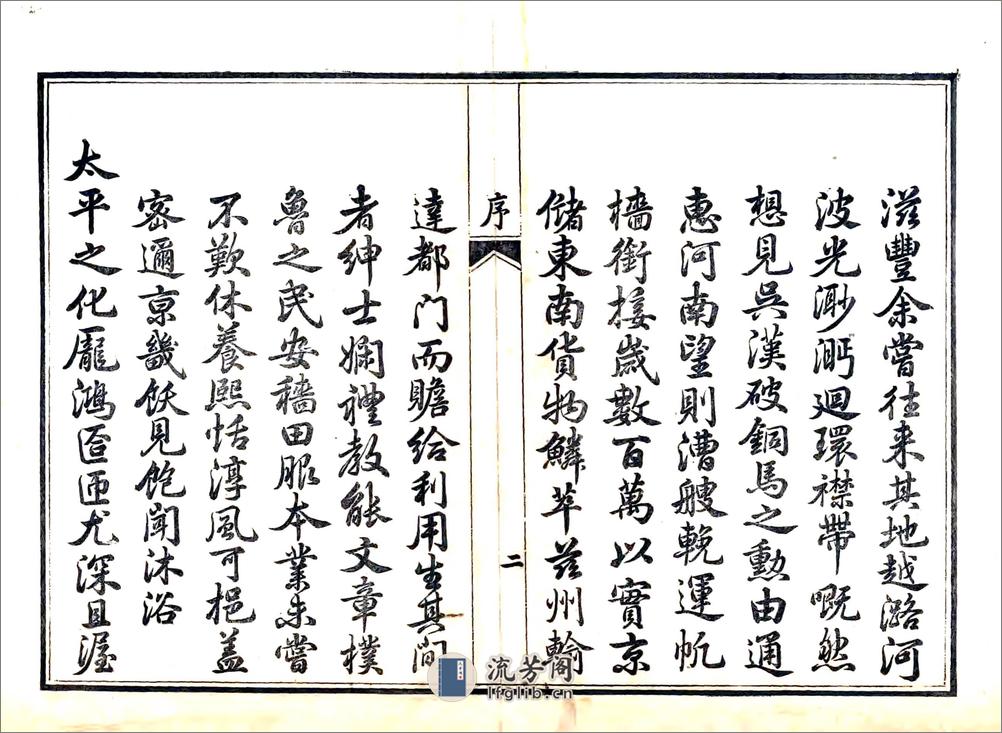 滋豐余嘗往来其地越潞河
波光渺沔迴環襟帶嘅然
想見吳漢破銅馬之勳由通
惠河南望則漕艘輓運帆
檣銜接歲數百萬以實京
儲東南貨物鱗萃茲州輸
序
二
達都门而贍给利用生其間
者紳士嫻禮教能文章樸
魯之民安穡田服本業未嘗
不歎休養熙恬淳風可挹盖
密邇京畿飫見飽聞沐浴
太平之化厖鴻匼匝尤深且渥
流芳閣
lfglib.cn